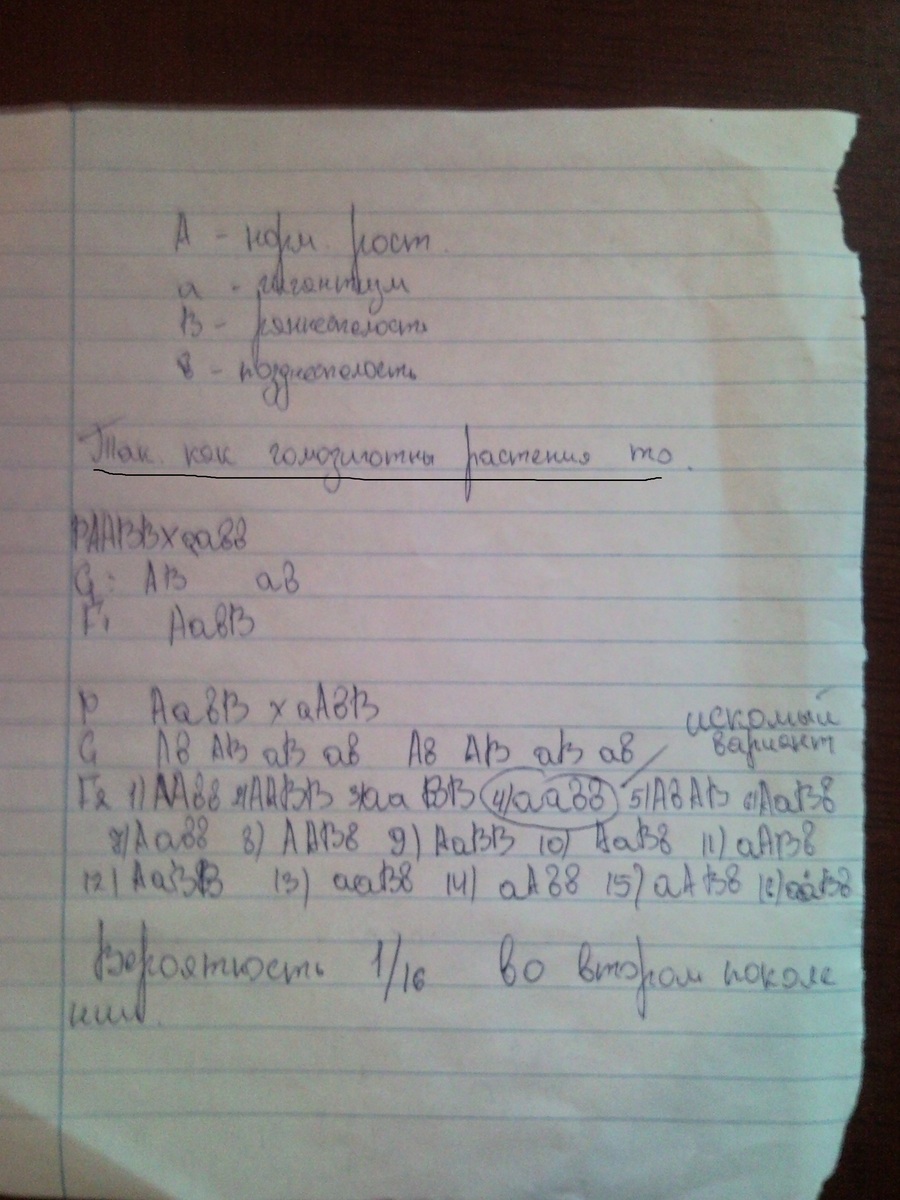 А - норм. рост.
а - гигантизм
В - раннеспелость
в - позднеспелость
Так как гомозиготны растения то.
РААВВхаавв
G: АВ ав
F1 АавВ
Р АавВ х аАвВ
G Ав АВ аВ ав Ав АВ аВ ав
искомый
вариант
F2 1)ААвв 2)ААВВ 3)аа ВВ 4)аавв 5)АВАВ 6)АаВв
7)Аавв 8) ААВв 9) АаВВ 10) АаВв 11) аАВв
12) АаВВ 13) ааВв 14) аАвв 15) аАВв 16)ааВв
Вероятность 1/16 во втором поколе
нии.